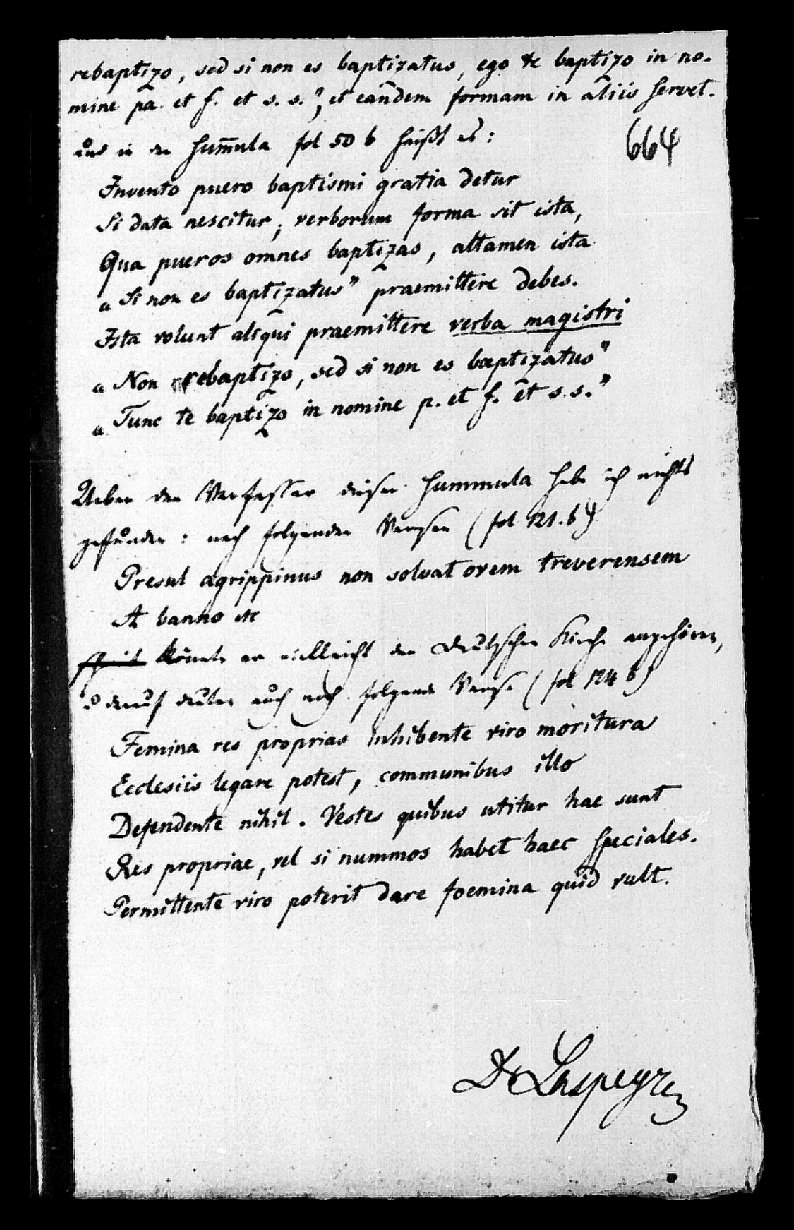 rebaptizo, sed si non es baptizatus, ego te baptizo in no-
mine pa. et f. et s. s.", et eandem formam in aliis servet.
und in der Sum̄ula fol 50 b heißt es:
664
Invento puero baptismi gratia detur
Si data nescitur, verborum forma sit ista,
Qua pueros omnes baptizas, attamen ista
„Si non es baptizatus" praemittere debes.
Ista volunt aliqui praemittere verba magistri
„Non rebaptizo, sed si non es baptizatus"
„Tunc te baptizo in nomine p. et f. et s. s."
Ueber den Verfasser dieser Summula habe ich nichts
gefunden: nach folgenden Versen (fol 121. b)
Presul agrippinus non solvat ovem treverensem
A banno etc
könnte er vielleicht der deutschen Kirche angehören,
u darauf deuten auch noch folgende Verse (fol 124 b)
Femina res proprias inhibente viro moritura
Ecclesiis legare potest, communibus illo
Defendente nihil. Vestes quibus utitur hae sunt
Res propriae, vel si nummos habet haec speciales.
Permittente viro poterit dare foemina quid vult.
Dr Laspeyres